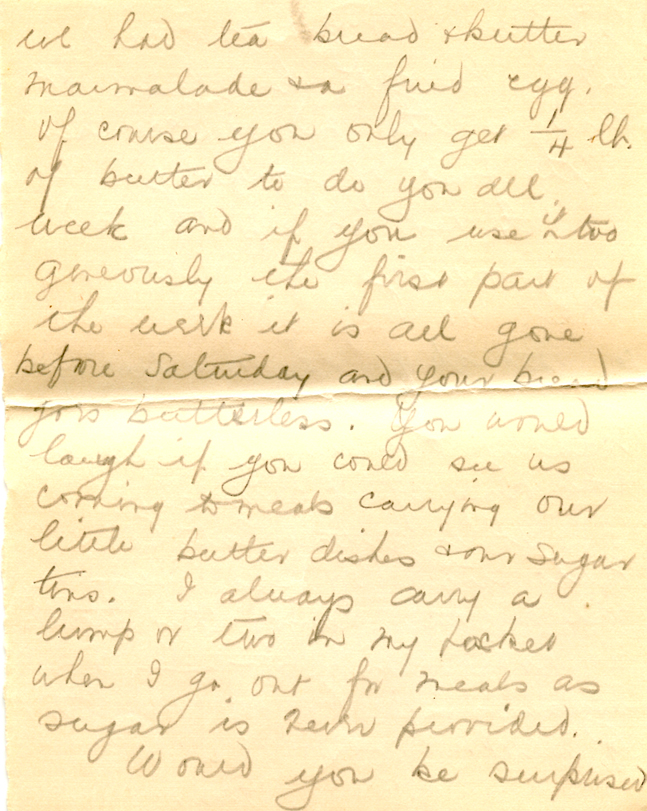 we had tea bread & butter
marmalade & a fried egg.
Of course you only get 1/4 lb.
of butter to do you all
week and if you use it too
generously the first part of
the week it is all gone
before Saturday and your bread
goes butterless. You would
laugh if you could see us
coming to meals carrying our
little butter dishes & our sugar
tins. I always carry a
lump or two in my pocket
when I go out for meals as
sugar is never provided.
Would you be surprised